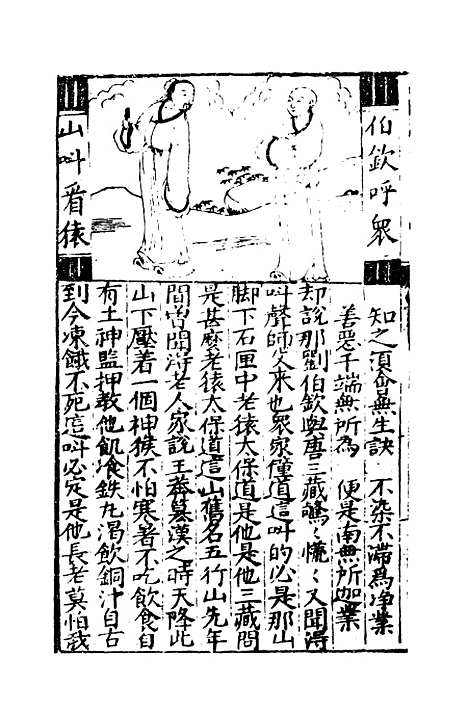 伯欽呼衆
山叫看猿
知之須會無生訣　不染不滯為净業
善惡千端無所為　便是南無所迦業
却説那劉伯欽與唐三藏驚〻慌〻又聞得
叫聲師父來也衆家僮道這叫的必是那山
脚下石匣中老猿太保道是他是他三藏問
是甚麽老猿太保道這山舊名五行山先年
間曽聞得老人家説王莽篡漢之時天降此
山下壓着一個神猴不怕寒暑不吃飲食自
有土神監押教他飢飡鉄九渴飲銅汁自古
到今凍餓不死這叫必定是他長老莫怕我